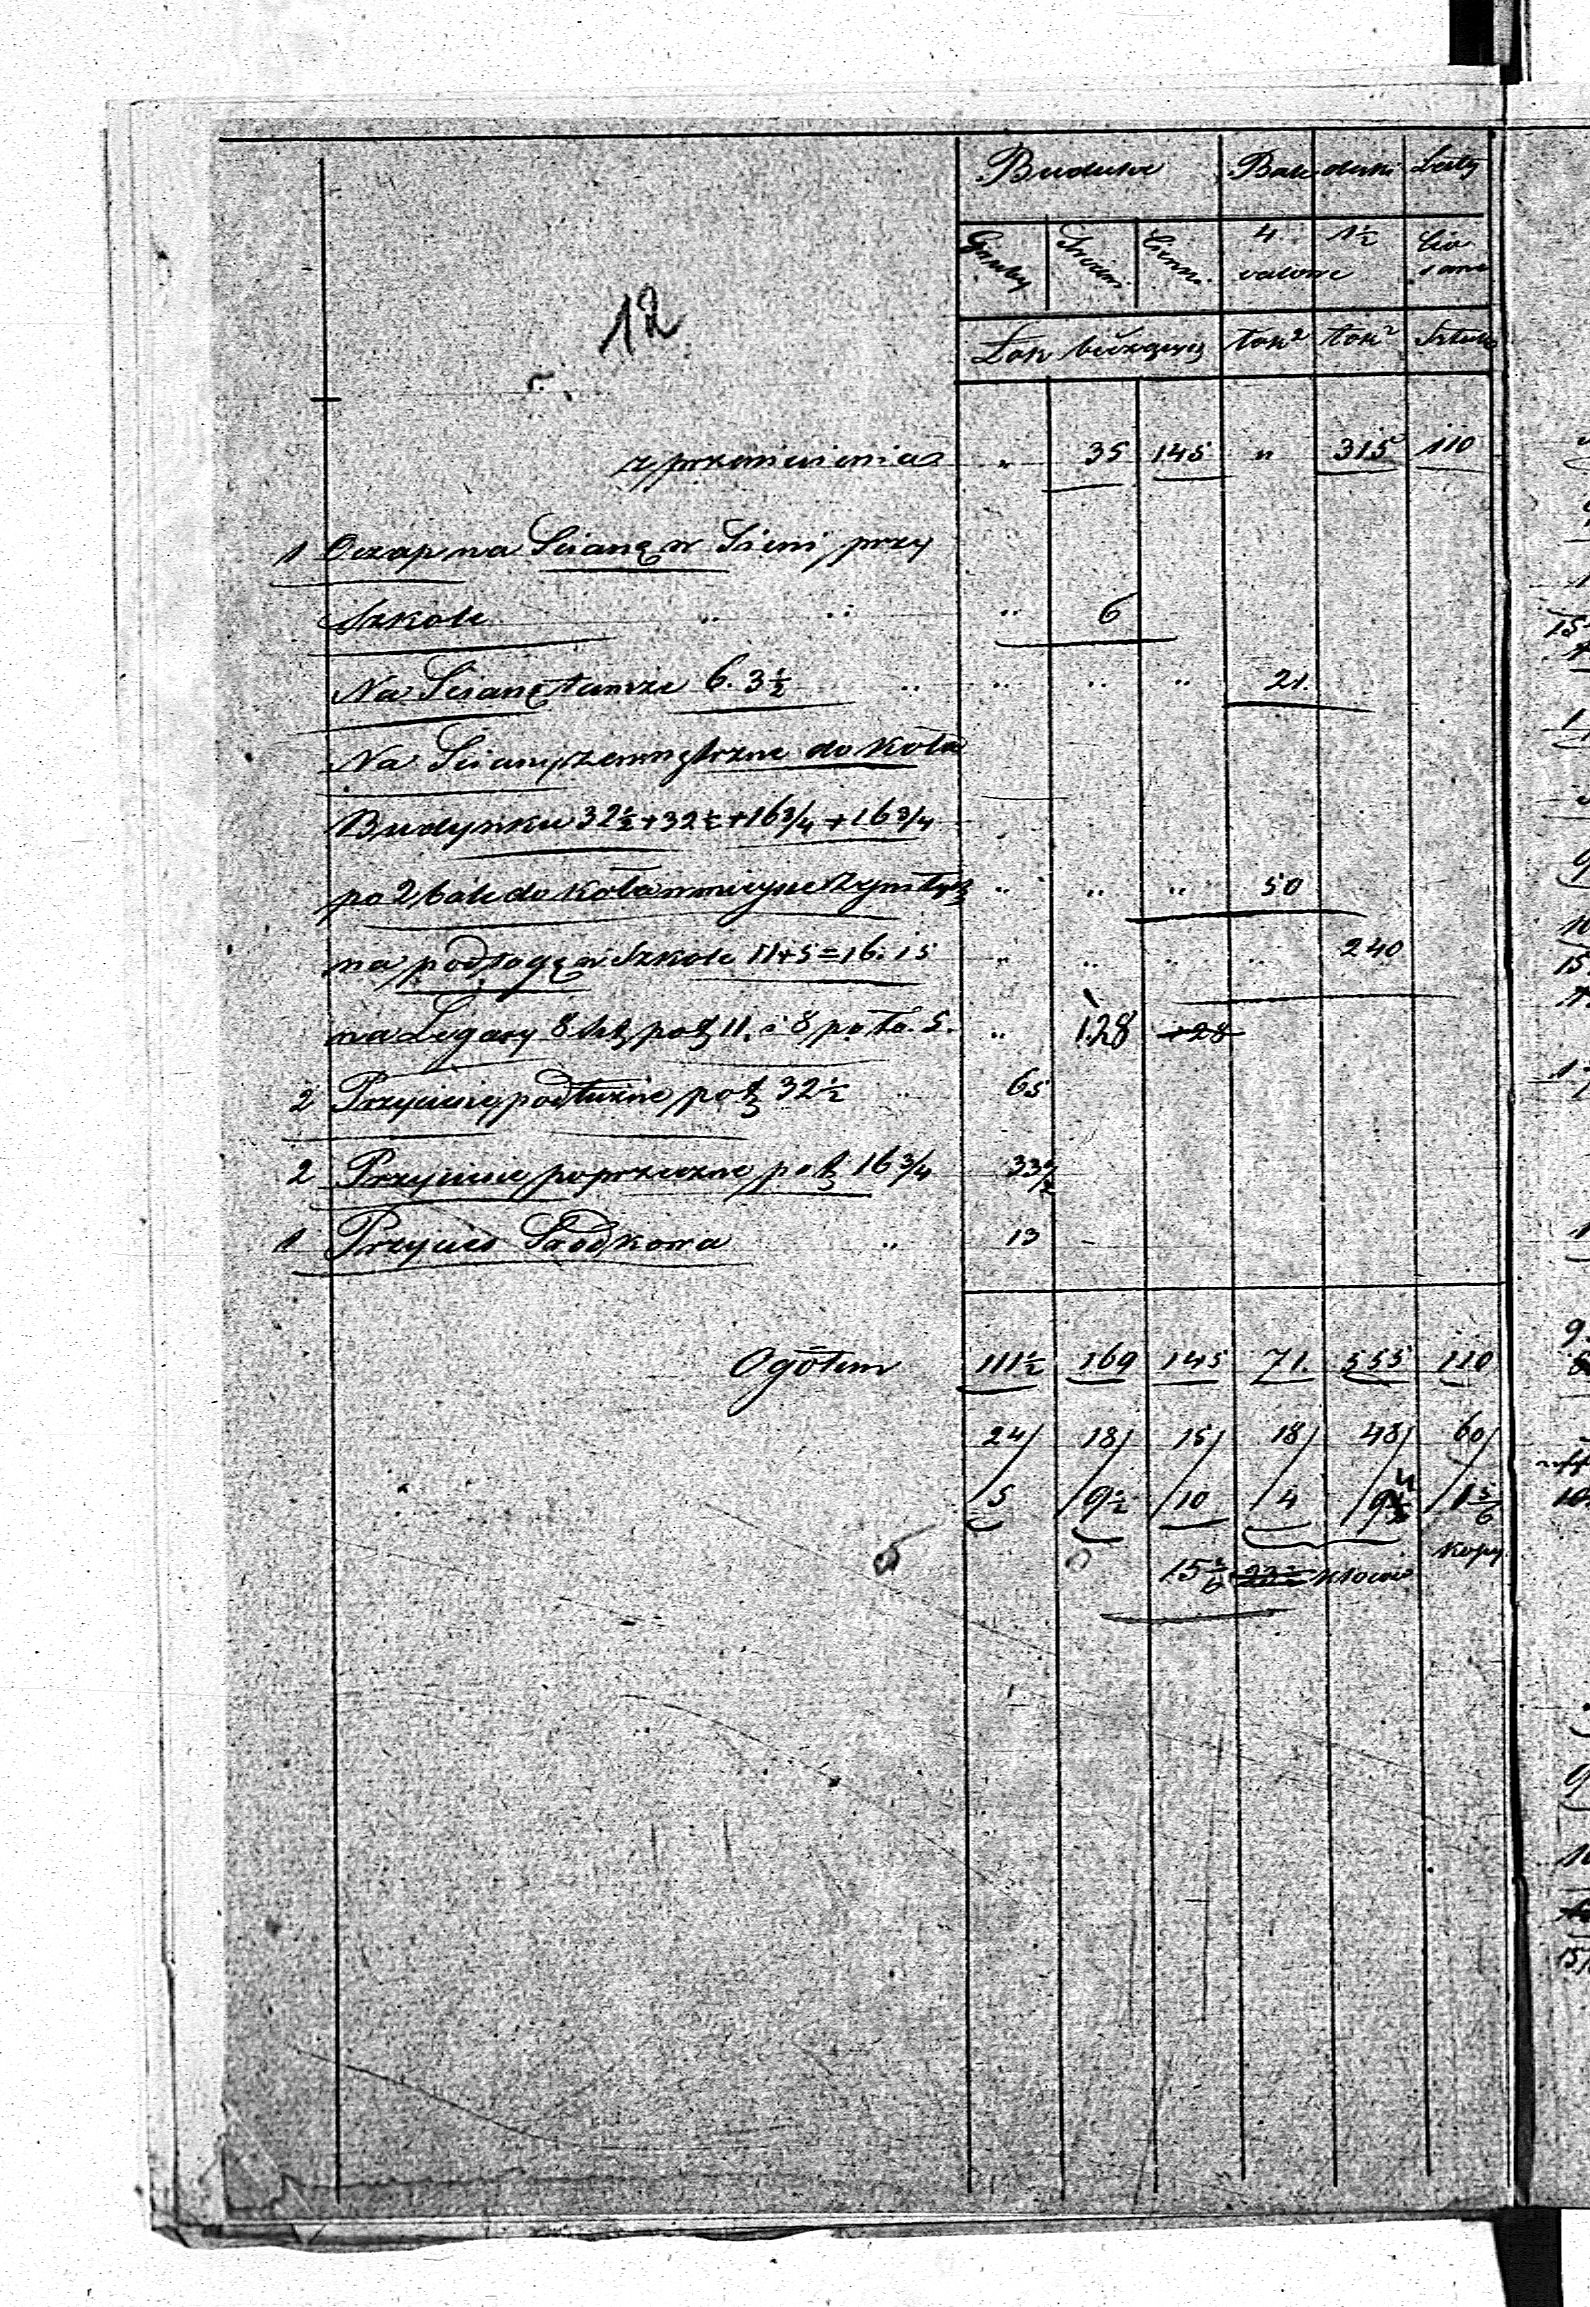 Budulec Bale deski Łaty
Gruby Średni Cienki 4 1½ Cio
calowe sane
Łok bieżących łok² łok² Sztuk
12
z przeniesienia " 35 145 " 315 110
1 Oczap na Scianę w Sieni przy
Szkole " 6
Na Scianę tamże 6. 3½ " " " 21.
Na Sciany zewnętrzne do koła
Budynku 32½+32½+16¾+16¾
po 2 bale do koła w miejsce zgniłych " " " 50
na podłogę w Szkole 11+5=16. 15 " " " " 240
na Legary 8 szt po ł 11. i 8 po łó. 5. " 128 128
2 Przyciesie podłużne po ł 32½ 65
2 Przyciesie poprzeczne po ł 16¾ 33½
1 Przycieś Srodkowa " 13
Ogółem 111½ 169 145 71. 555 110
24/ 18/ 15/ 18/ 48/ 60/
/5 /9½ /10 /4 /1 5/6
kopy
15 kloców